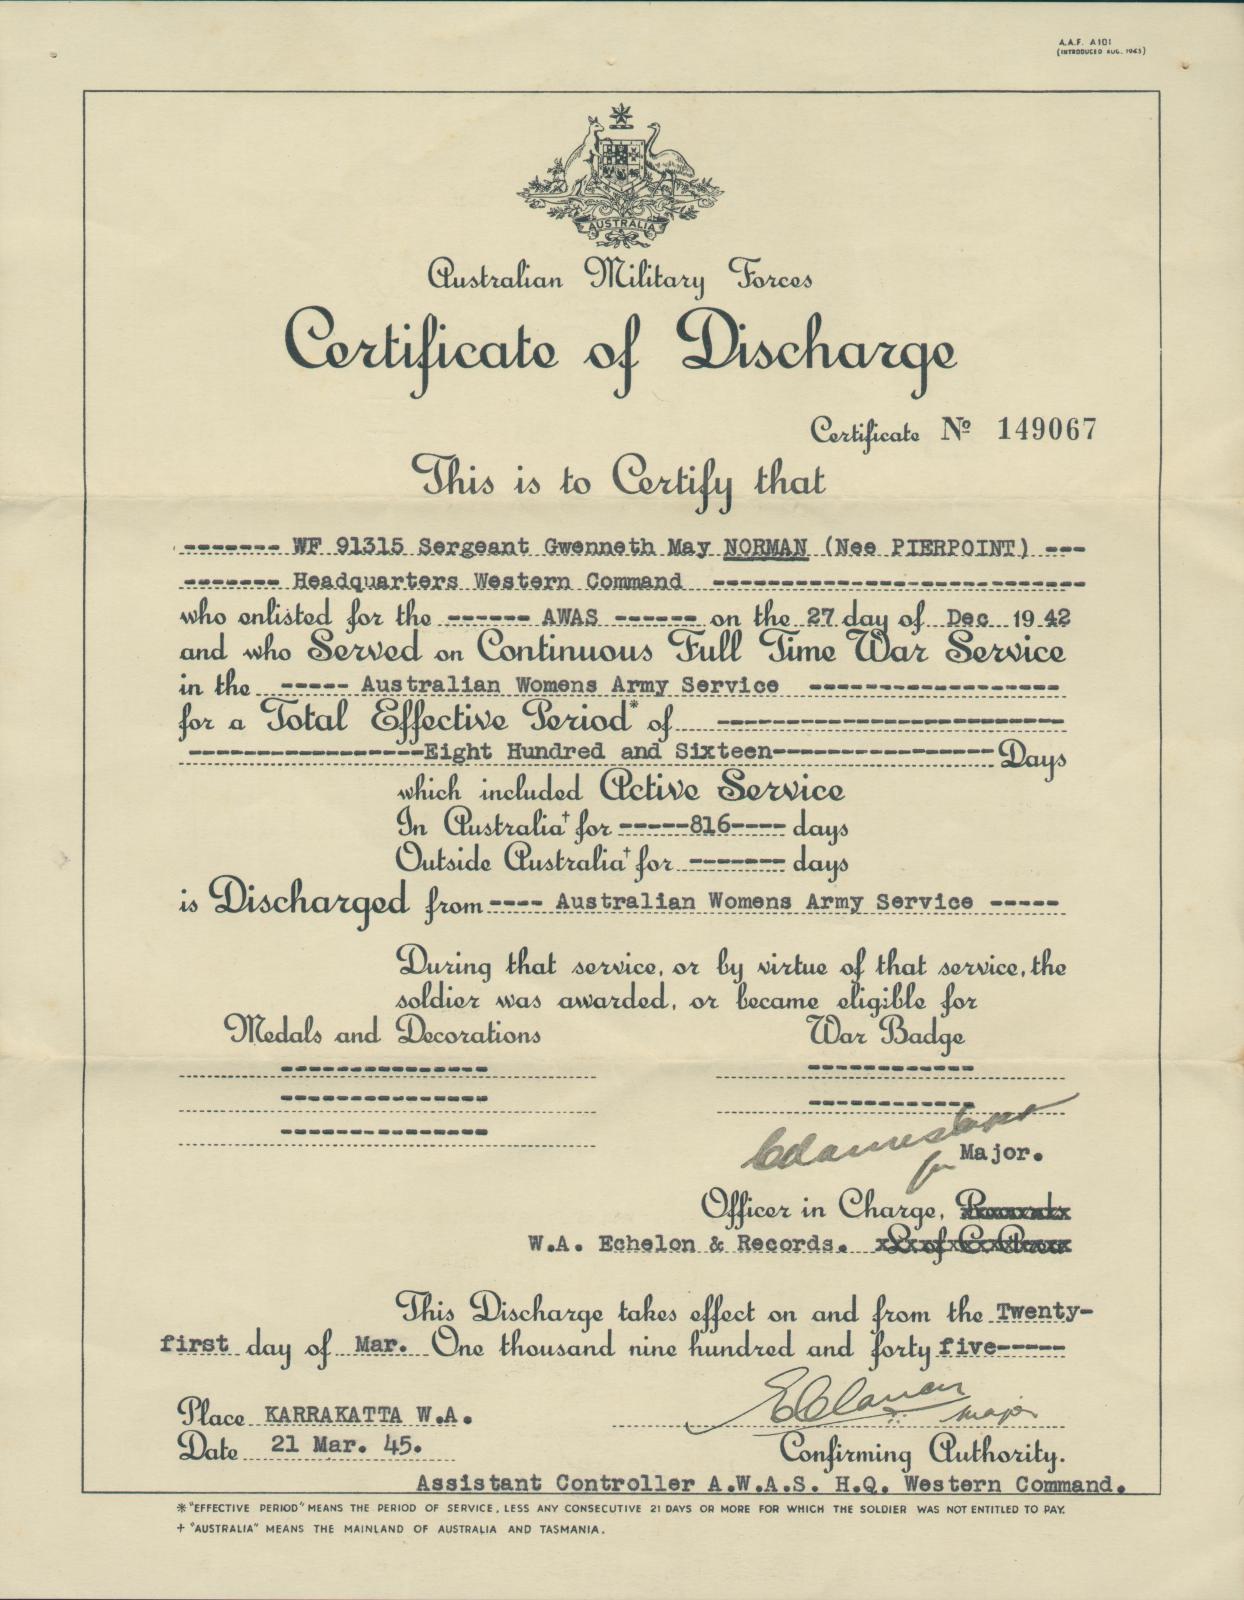 A.A.F. A101
(INTRODUCED AUG. 1943)
AUSTRALIA
Australian Military Forces
Certificate of Discharge
Certificate No 149067
This is to Certify that
------- WF 91315 Sergeant Gwenneth May NORMAN (Nee PIERPOINT) ---
------- Headquarters Western Command ---------------------------
who enlisted for the ------ AWAS ------ on the 27 day of Dec 1942
and who Served on Continuous Full Time War Service
in the ----- Australian Womens Army Service ------------------
for a Total Effective Period* of -------------------------
-----------------Eight Hundred and Sixteen---------------- Days
which included Active Service
In Australia† for -----816---- days
Outside Australia† for ------- days
is Discharged from ---- Australian Womens Army Service -----
During that service, or by virtue of that service, the
soldier was awarded, or became eligible for
Medals and Decorations War Badge
--------------- ------------
--------------- ------------
---------------
for Major.
Officer in Charge, Records
W.A. Echelon & Records. L of C Area
This Discharge takes effect on and from the Twenty-
first day of Mar. One thousand nine hundred and forty five-----
Place KARRAKATTA W.A.
major
Date 21 Mar. 45. Confirming Authority.
Assistant Controller A.W.A.S. H.Q. Western Command.
* "EFFECTIVE PERIOD" MEANS THE PERIOD OF SERVICE, LESS ANY CONSECUTIVE 21 DAYS OR MORE FOR WHICH THE SOLDIER WAS NOT ENTITLED TO PAY.
† "AUSTRALIA" MEANS THE MAINLAND OF AUSTRALIA AND TASMANIA.